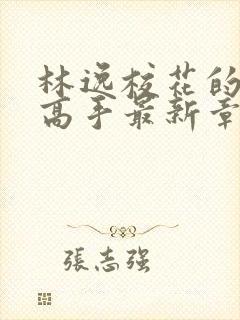 林逸校花的
高手最新章
張志强